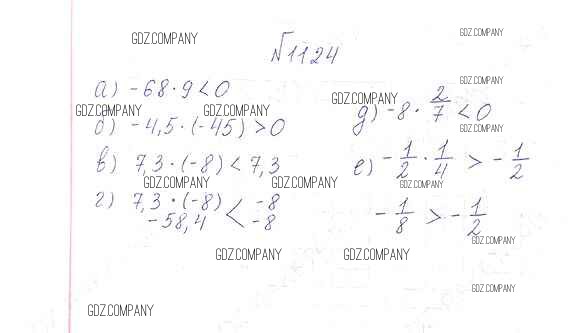 GDZ.COMPANY
GDZ.COMPANY
№1124
GDZ.COMPANY
а) -68·9<0
GDZ.COMPANY
GDZ.COMPANY
GDZ.COMPANY
б) -4,5·(-45)>0
д) -8·2/7<0
GDZ.COMPANY
в) 7,3·(-8)<7,3
е) -1/2·1/4>-1/2
GDZ.COMPANY
GDZ.COMPANY
GDZ.COMPANY
г) 7,3·(-8) < -8
-58,4 < -8
-1/8>-1/2
GDZ.COMPANY
GDZ.COMPANY
GDZ.COMPANY
GDZ.COMPANY
GDZ.COMPANY